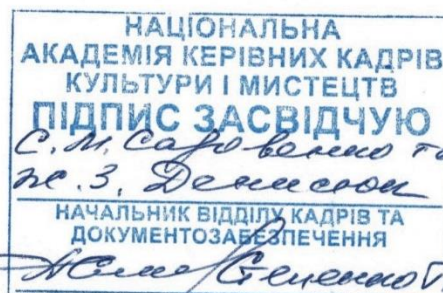 НАЦІОНАЛЬНА
АКАДЕМІЯ КЕРІВНИХ КАДРІВ
КУЛЬТУРИ І МИСТЕЦТВ
ПІДПИС ЗАСВІДЧУЮ
С. М. Садовенко та
Ж. З. Денисюк
НАЧАЛЬНИК ВІДДІЛУ КАДРІВ ТА
ДОКУМЕНТОЗАБЕЗПЕЧЕННЯ